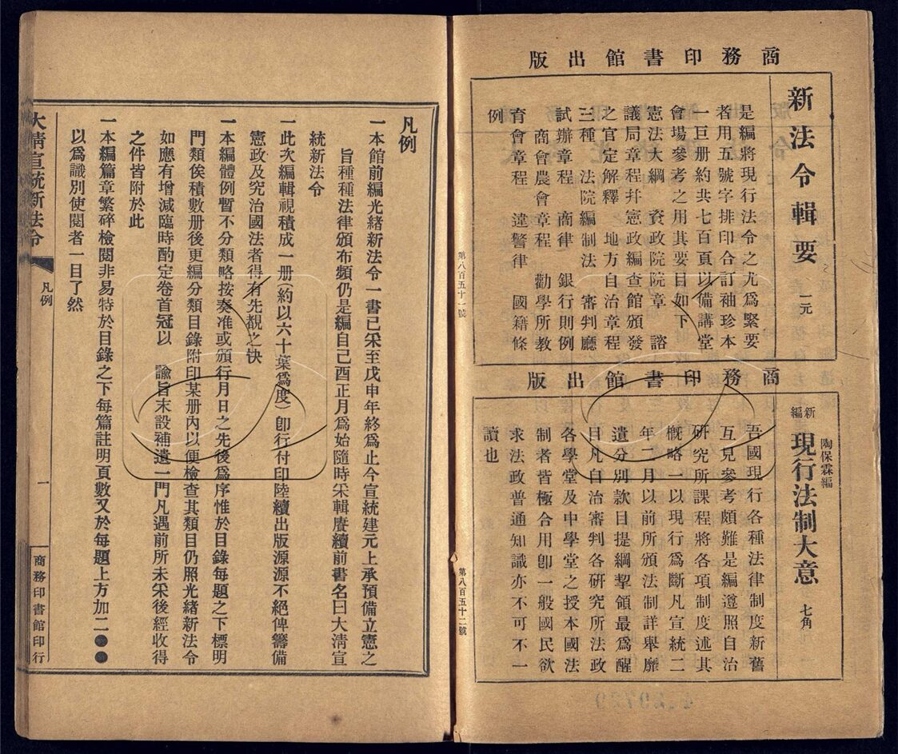 商務印書館出版
新法令輯要 一元
是編將現行法令之尤爲緊要
者用五號字排印合訂袖珍本
一巨册約共七百頁以備講堂
會場參考之用其要目如下
憲法大綱 資政院院章 諮
議局章程幷憲政編查館頒發
之官定解釋 地方自治章程
三種 法院編制法 審判廳
試辦章程 商律 銀行則例
商會農會章程 勸學所教
育會章程 違警律 國籍條
例
第八百五十一號
商務印書館出版
新編
陶保霖編
現行法制大意 七角
吾國現行各種法律制度新舊
互見參考頗難是編遵照自治
硏究所課程將各項制度述其
槪略一以現行爲斷凡宣統二
年二月以前所頒法制詳舉靡
遺分別款目提綱挈領最爲醒
目凡自治審判各硏究所法政
各學堂及中學堂之授本國法
制者皆極合用卽一般國民欲
求法政普通知識亦不可不一
讀也
第八百五十二號
凡例
一本館前編光緒新法令一書已采至戊申年終爲止今宣統建元上承預備立憲之
旨種種法律頒布頻仍是編自己酉正月爲始隨時采輯賡續前書名曰大淸宣
統新法令
一此次編輯視積成一册(約以六十葉爲度)卽行付印陸續出版源源不絕俾籌備
憲政及究治國法者得有先覩之快
一本編體例暫不分類略按奏准或頒行月日之先後爲序惟於目錄每題之下標明
門類俟積數册後更編分類目錄附印某册內以便檢查其類目仍照光緒新法令
如應有增減臨時酌定卷首冠以 諭旨末設補遺一門凡遇前所未采後經收得
之件皆附於此
一本編篇章繁碎檢閱非易特於目錄之下每篇註明頁數又於每題上方加二●●
以爲識別使閱者一目了然
大淸宣統新法令
凡例
一
商務印書館印行